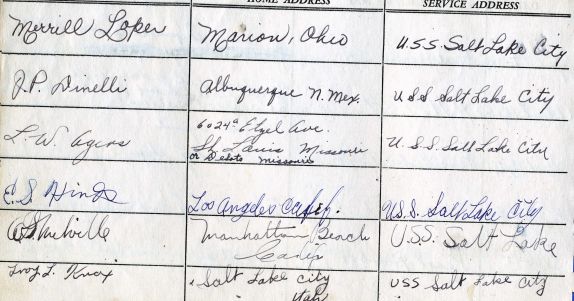 HOME ADDRESS SERVICE ADDRESS
Merrill Loper Marion, Ohio U.S.S. Salt Lake City
J.P. Dinelli Albuquerque N. Mex. U.S.S. Salt Lake City
6024a Etzel Ave.
L.W. Agers St. Louis Missouri U.S.S. Salt Lake City
or Desoto Missouri
E.S. Hinds Los Angeles Calif. U.S.S. Salt Lake City
Manhattan Beach U.S.S. Salt Lake
Calif
Troy L. Knox Salt Lake City USS Salt Lake City
Utah